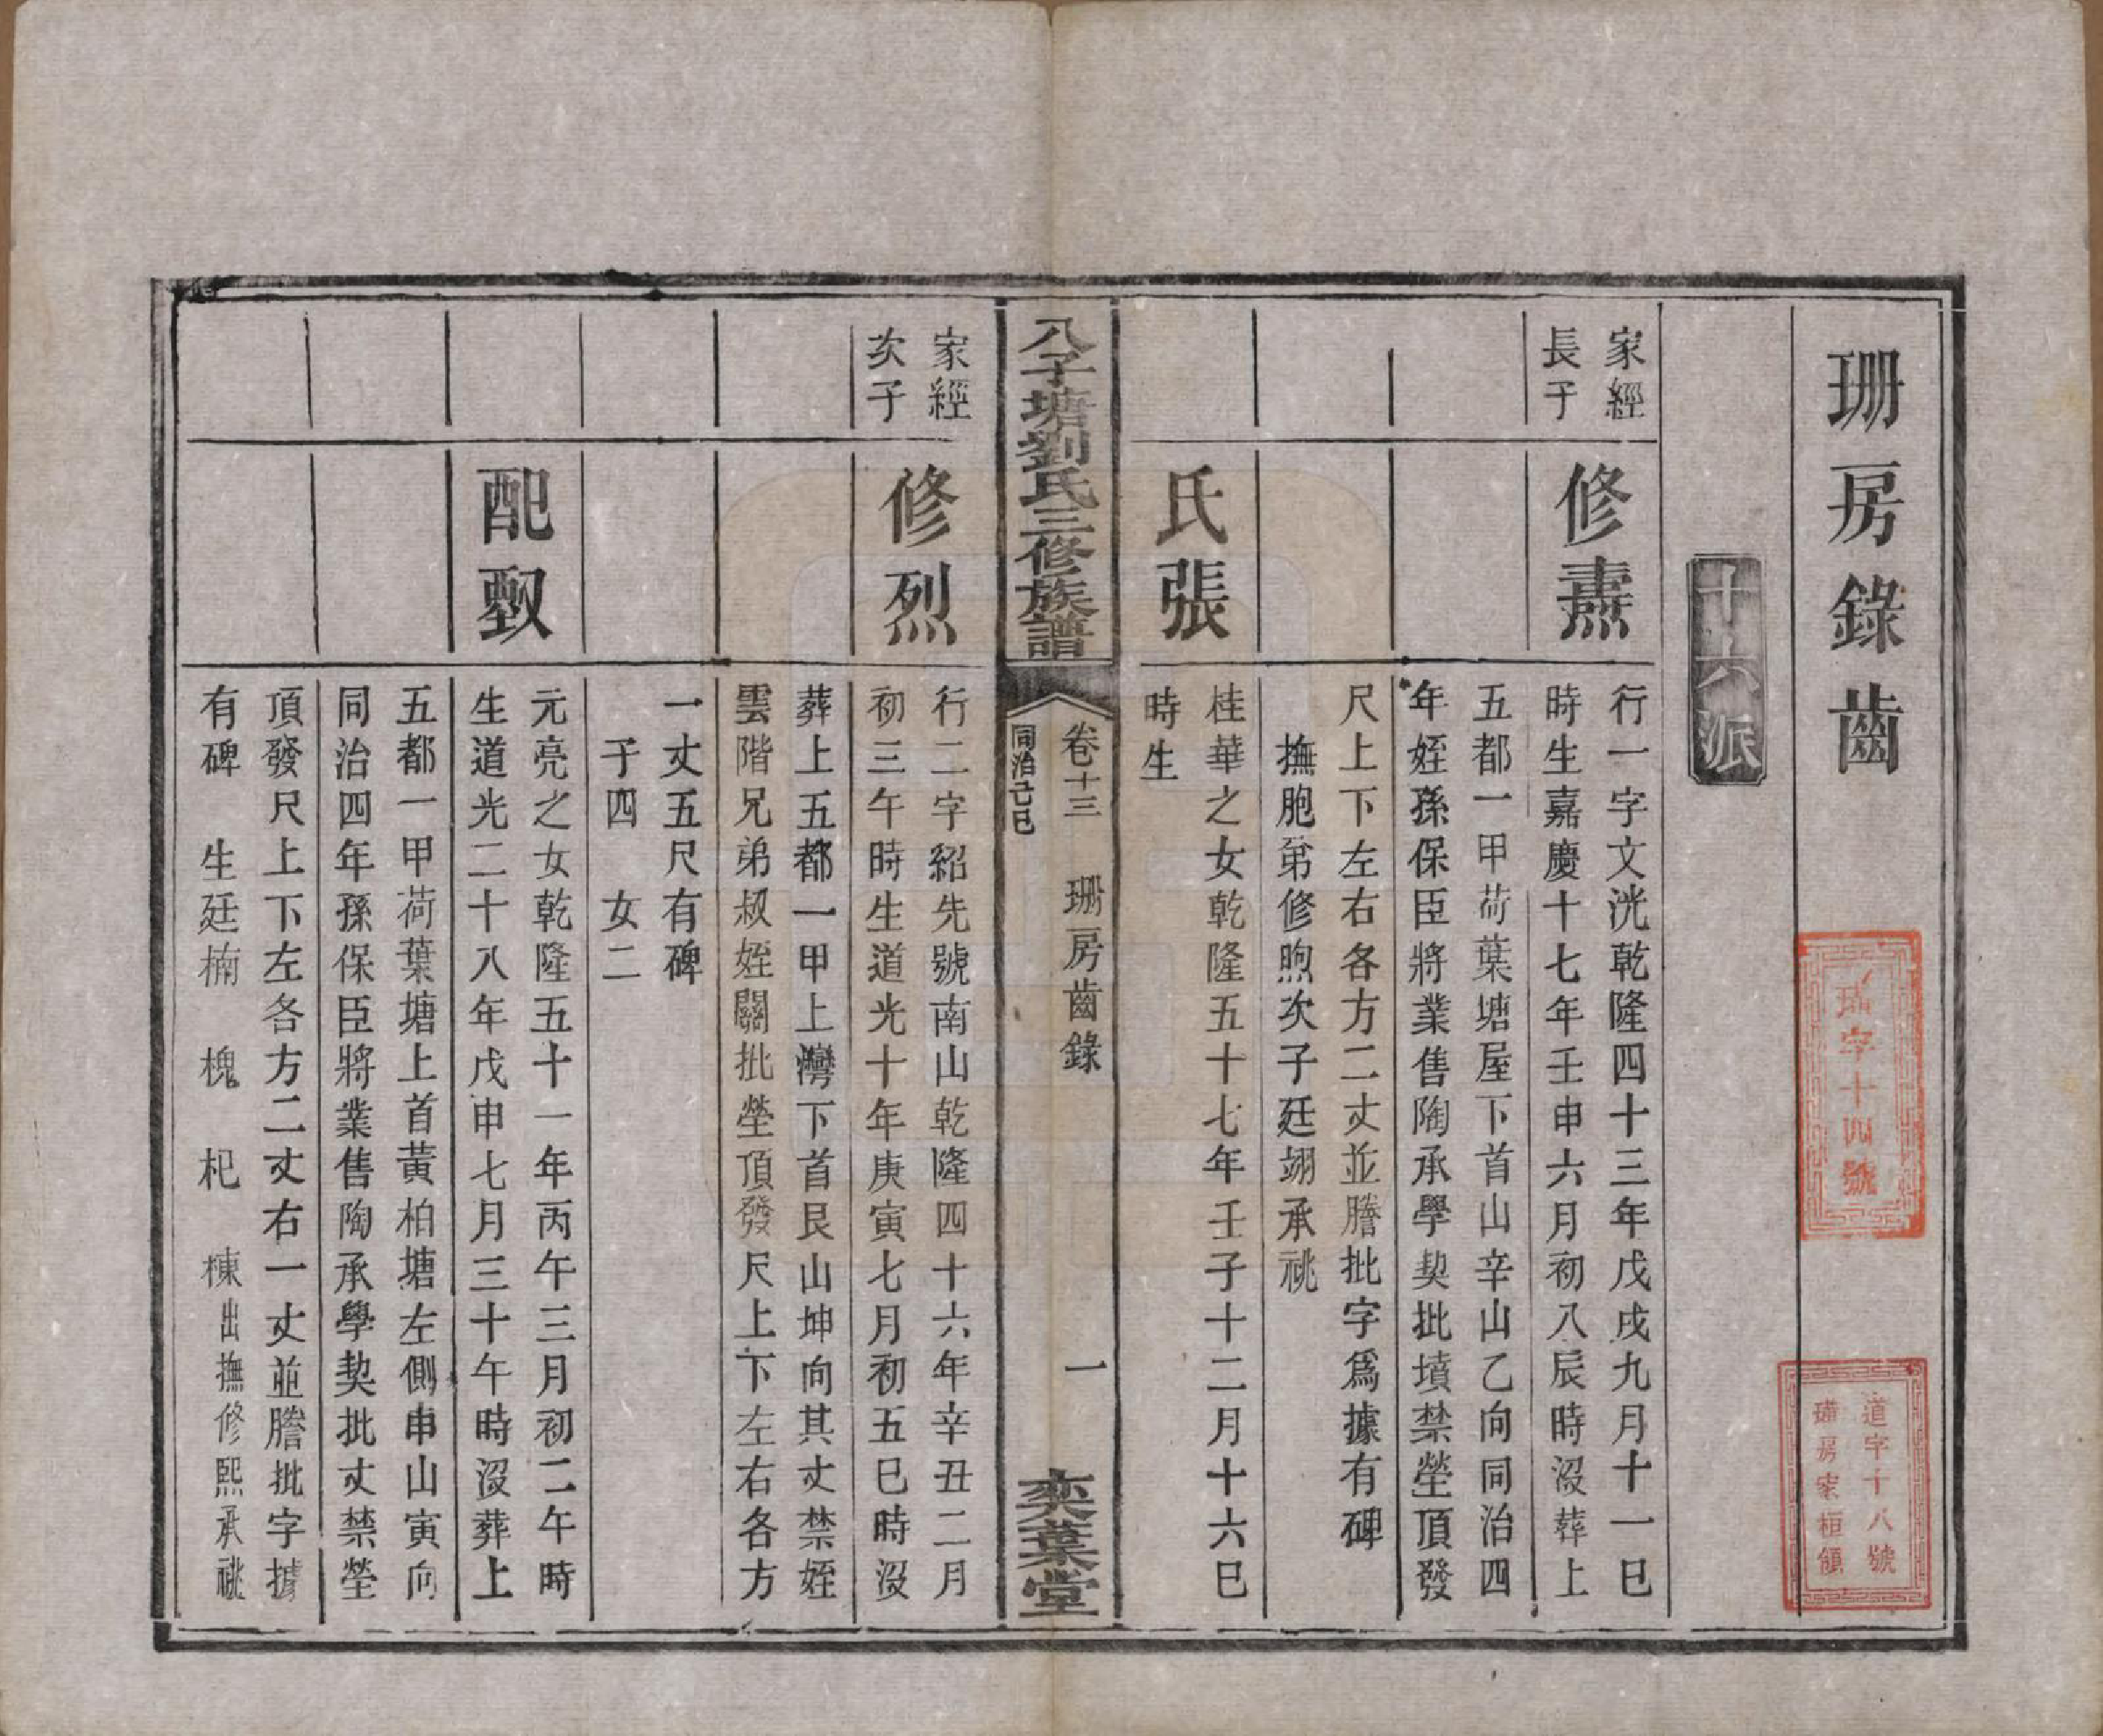 珊房錄齒
十六派
家經
長子
修燾
行一字文洸乾隆四十三年戊戌九月十一巳
時生嘉慶十七年壬申六月初八辰時沒葬上
五都一甲荷葉塘屋下首山辛山乙向同治四
年姪孫保臣將業售陶承學契批墳禁塋頂發
尺上下左右各方二丈並謄批字爲據有碑
撫胞弟修煦次子廷翊承祧
氏張
桂華之女乾隆五十七年壬子十二月十六巳
時生
八子塘劉氏三修族譜
卷十三 珊房齒錄 一
同治己巳
奕葉堂
家經
次子
修烈
行二字紹先號南山乾隆四十六年辛丑二月
初三午時生道光十年庚寅七月初五巳時沒
葬上五都一甲上灣下首艮山坤向其丈禁姪
雲階兄弟叔姪關批塋頂發尺上下左右各方
一丈五尺有碑
子四 女二
配
元亮之女乾隆五十一年丙午三月初二午時
生道光二十八年戊申七月三十午時沒葬上
五都一甲荷葉塘上首黃柏塘左側申山寅向
同治四年孫保臣將業售陶承學契批丈禁塋
頂發尺上下左各方二丈右一丈並謄批字據
有碑 生廷楠 槐 杞 棟出撫修熙承祧
字十四號
道字十八號
房家桓領